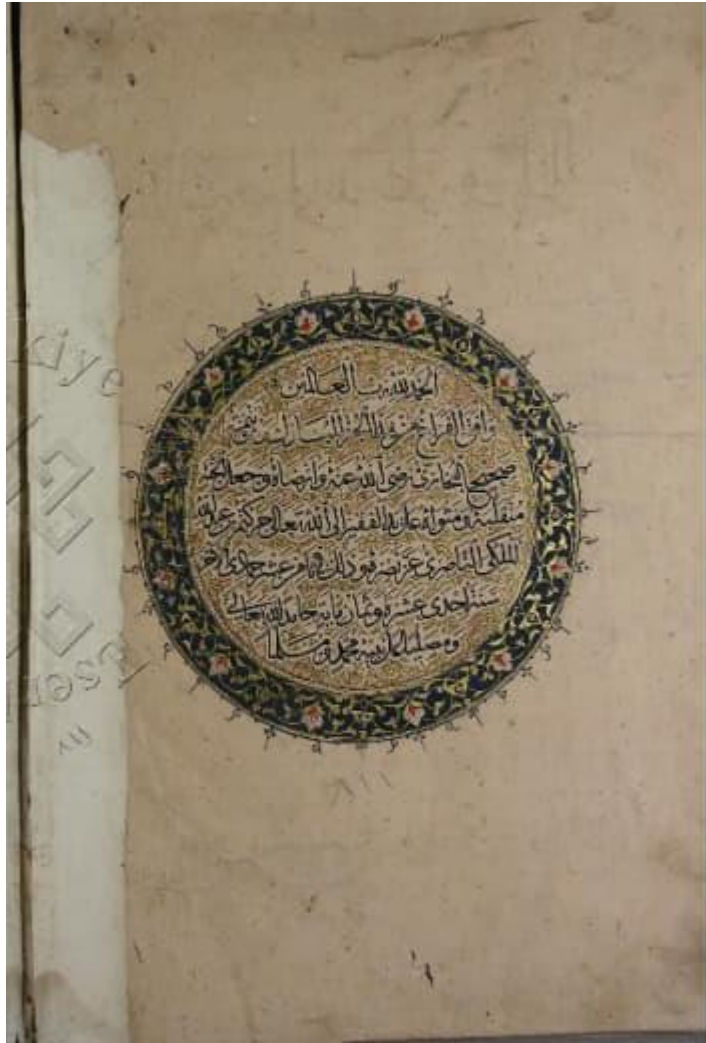 الحمد لله رب العالمين
وافق الفراغ من هذا الجزء المبارك
صحيح البخاري رضي الله عنه وارضاه وجعل الجنة
منقلبه ومثواه على يد الفقير الى الله تعالى
الملكي الناصري عز نصره وذلك في ثامن عشر جمادى الاخر
سنة احدى عشرة وثمان ماية حامدا لله تعالى
ومصليا على نبيه محمد ومسلما
٨١١